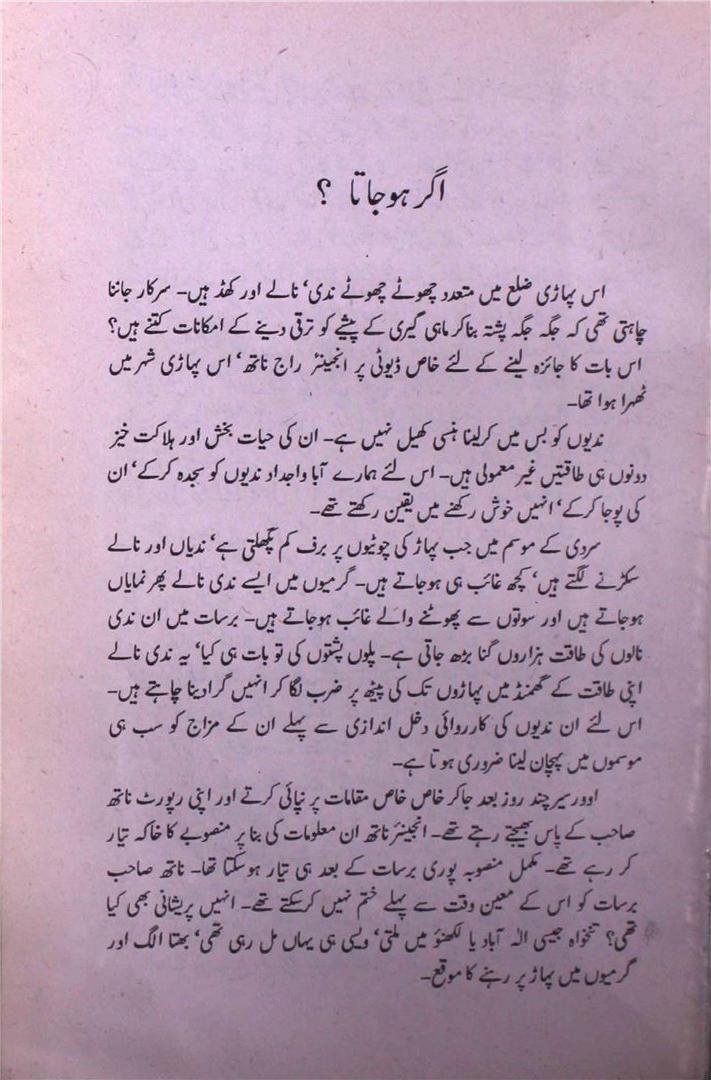 اگر ہوجاتا ؟
اس پہاڑی ضلع میں متعدد چھوٹے چھوٹے ندی‘ نالے اور کھڈ ہیں۔ سرکار جاننا
چاہتی تھی کہ جگہ جگہ پشتہ بناکر ماہی گیری کے پیشے کو ترقی دینے کے امکانات کتنے ہیں؟
اس بات کا جائزہ لینے کے لئے خاص ڈیوٹی پر انجینئر راج ناتھ‘ اس پہاڑی شہر میں
ٹھہرا ہوا تھا۔
ندیوں کو بس میں کرلینا ہنسی کھیل نہیں ہے۔ ان کی حیات بخش اور ہلاکت خیز
دونوں ہی طاقتیں غیر معمولی ہیں۔ اس لئے ہمارے آبا واجداد ندیوں کو سجدہ کرکے‘ ان
کی پوجا کرکے‘ انہیں خوش رکھنے میں یقین رکھتے تھے۔
سردی کے موسم میں جب پہاڑ کی چوٹیوں پر برف کم پگھلتی ہے‘ ندیاں اور نالے
سکڑنے لگتے ہیں‘ کچھ غائب ہی ہوجاتے ہیں۔ گرمیوں میں ایسے ندی نالے پھر نمایاں
ہوجاتے ہیں اور سوتوں سے پھوٹنے والے غائب ہوجاتے ہیں۔ برسات میں ان ندی
نالوں کی طاقت ہزاروں گنا بڑھ جاتی ہے۔ پلوں پشتوں کی تو بات ہی کیا‘ یہ ندی نالے
اپنی طاقت کے گھمنڈ میں پہاڑوں تک کی پیٹھ پر ضرب لگا کر انہیں گرادینا چاہتے ہیں۔
اس لئے ان ندیوں کی کارروائی دخل اندازی سے پہلے ان کے مزاج کو سب ہی
موسموں میں پہچان لینا ضروری ہوتا ہے۔
اوورسیر چند روز بعد جاکر خاص خاص مقامات پر نپائی کرتے اور اپنی رپورٹ ناتھ
صاحب کے پاس بھیجتے رہتے تھے۔ انجینئر ناتھ ان معلومات کی بنا پر منصوبے کا خاکہ تیار
کر رہے تھے۔ مکمل منصوبہ پوری برسات کے بعد ہی تیار ہوسکتا تھا۔ ناتھ صاحب
برسات کو اس کے معین وقت سے پہلے ختم نہیں کرسکتے تھے۔ انہیں پریشانی بھی کیا
تھی؟ تنخواہ جیسی الہ آباد یا لکھنؤ میں ملتی‘ ویسی ہی یہاں مل رہی تھی‘ بھتا الگ اور
گرمیوں میں پہاڑ پر رہنے کا موقع۔